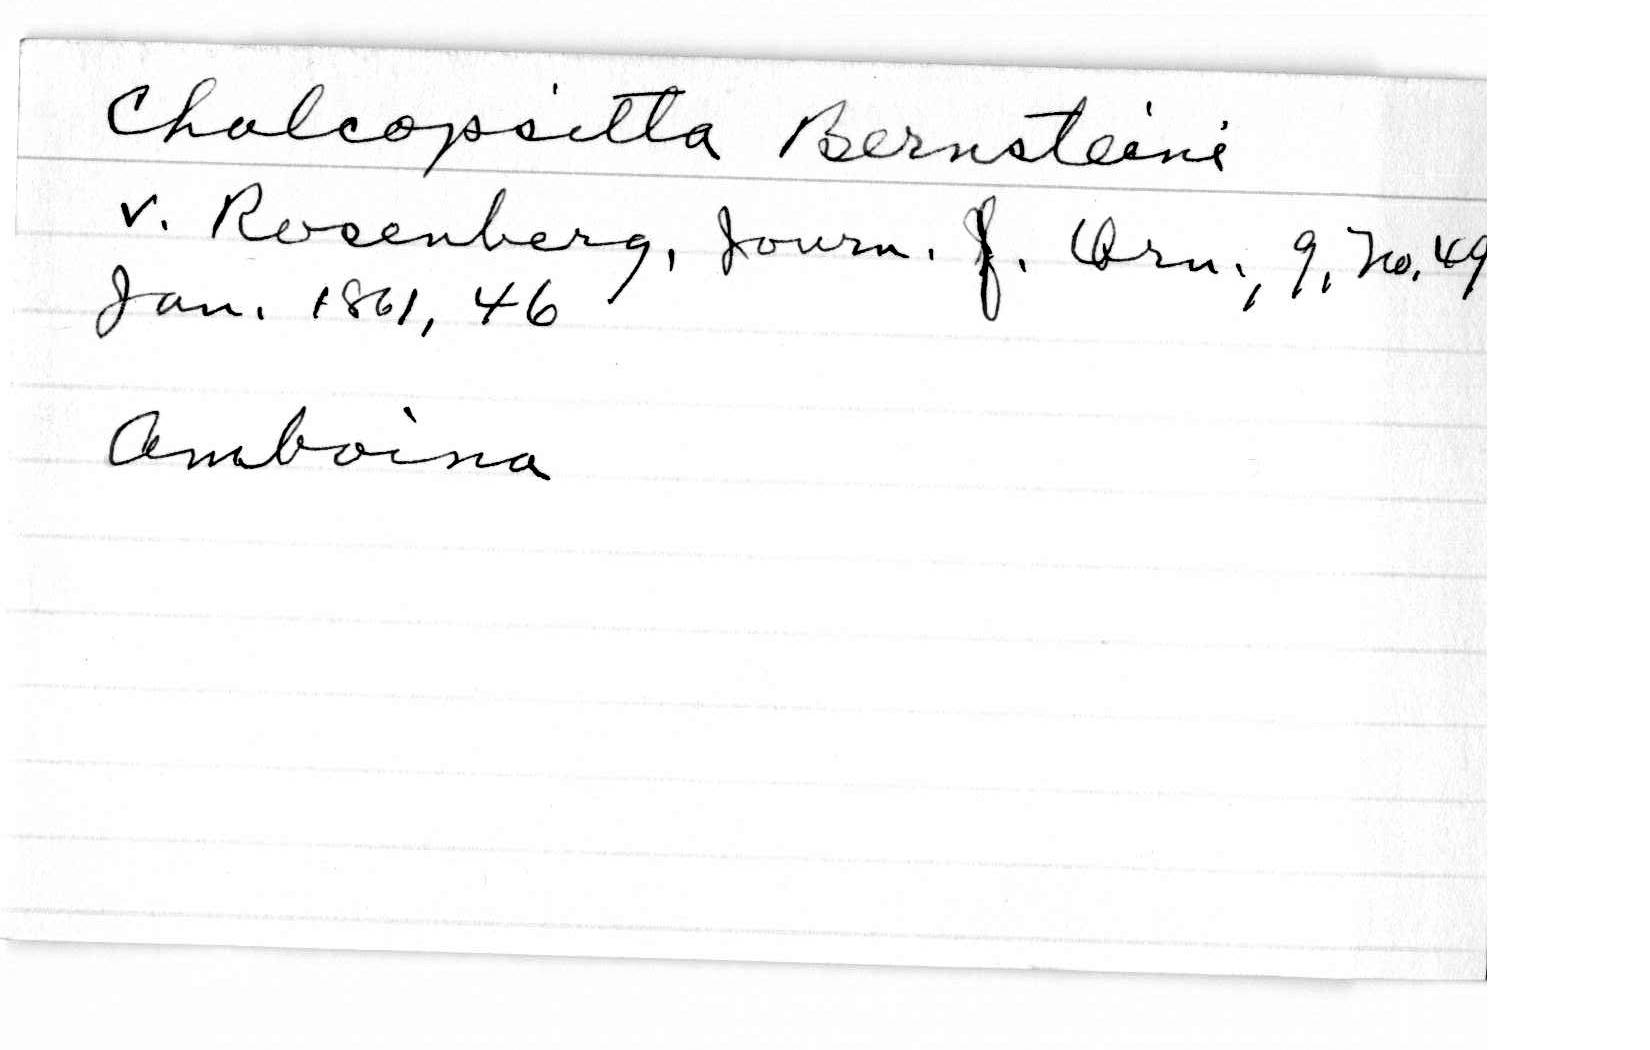 Chalcopsitta Bernsteini
v. Rosenberg, Journ. f. Orn., 9, no. 49
Jan. 1861, 46
Amboina